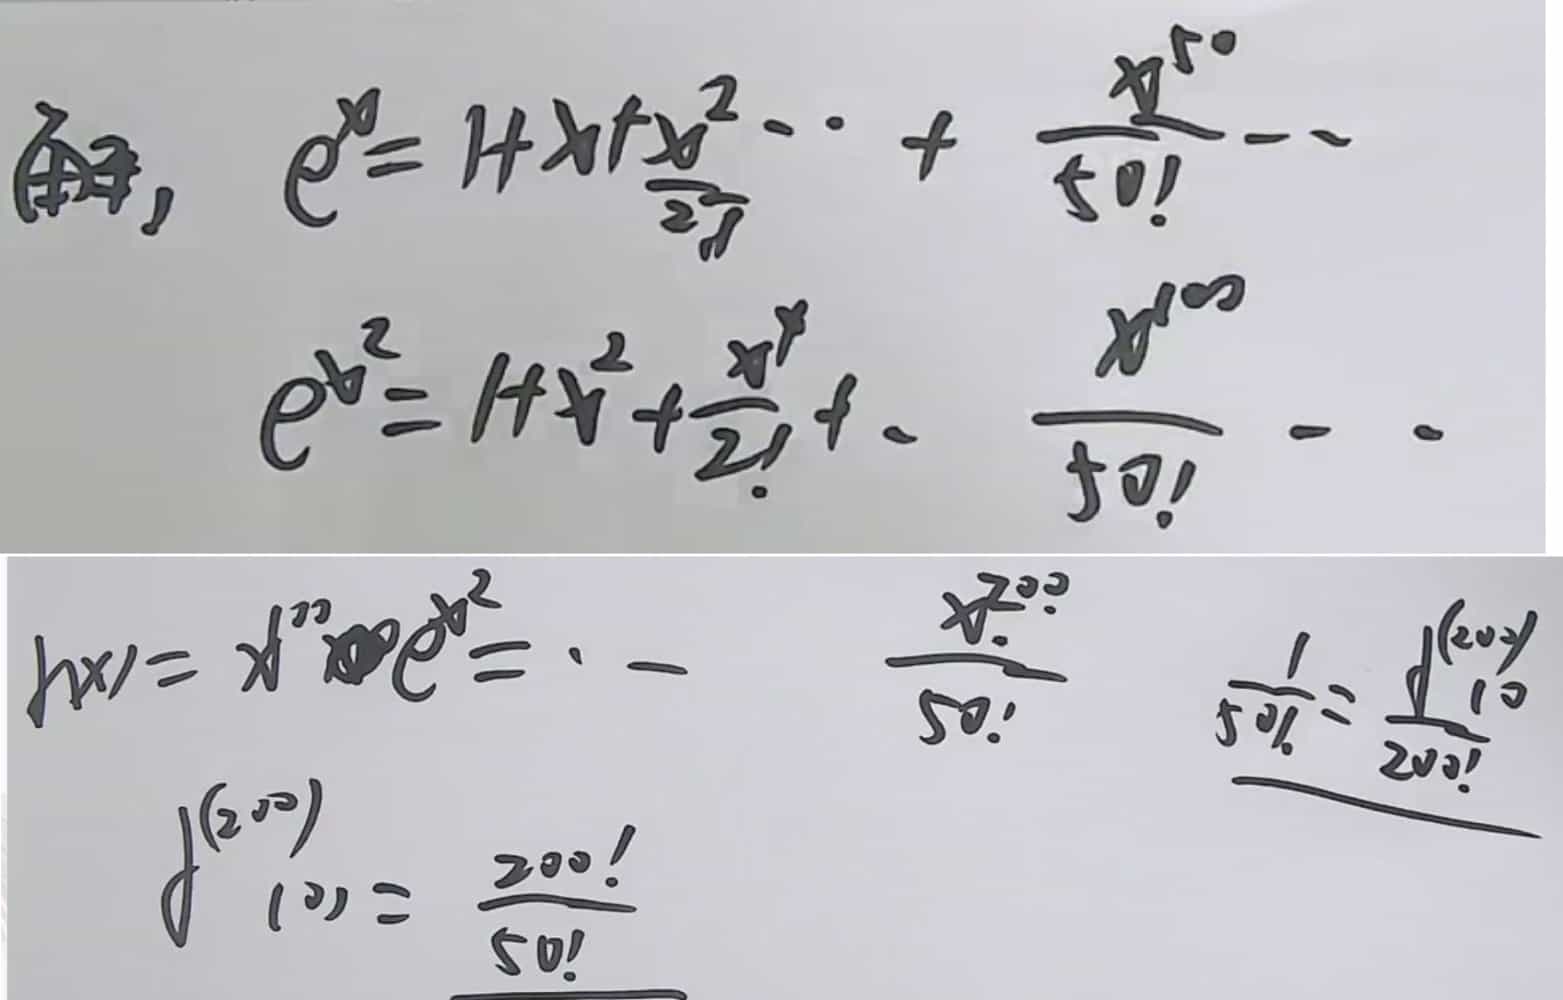 解, e^x = 1+x+x^2/2! ·· + x^50/50! --
e^x^2 = 1+x^2+x^4/2!+· x^100/50! - ·
f(x) = x^100 e^x^2 = · - x^200/50! 1/50! = f^(200)(0/200!
f^(200)(0) = 200!/50!